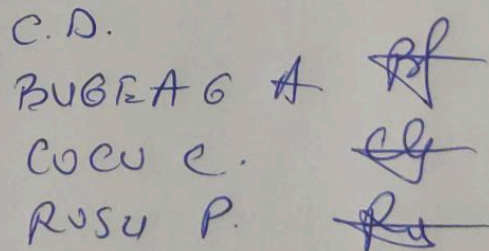 C.D.
BUGEAG A
COCU C.
RUSU P.